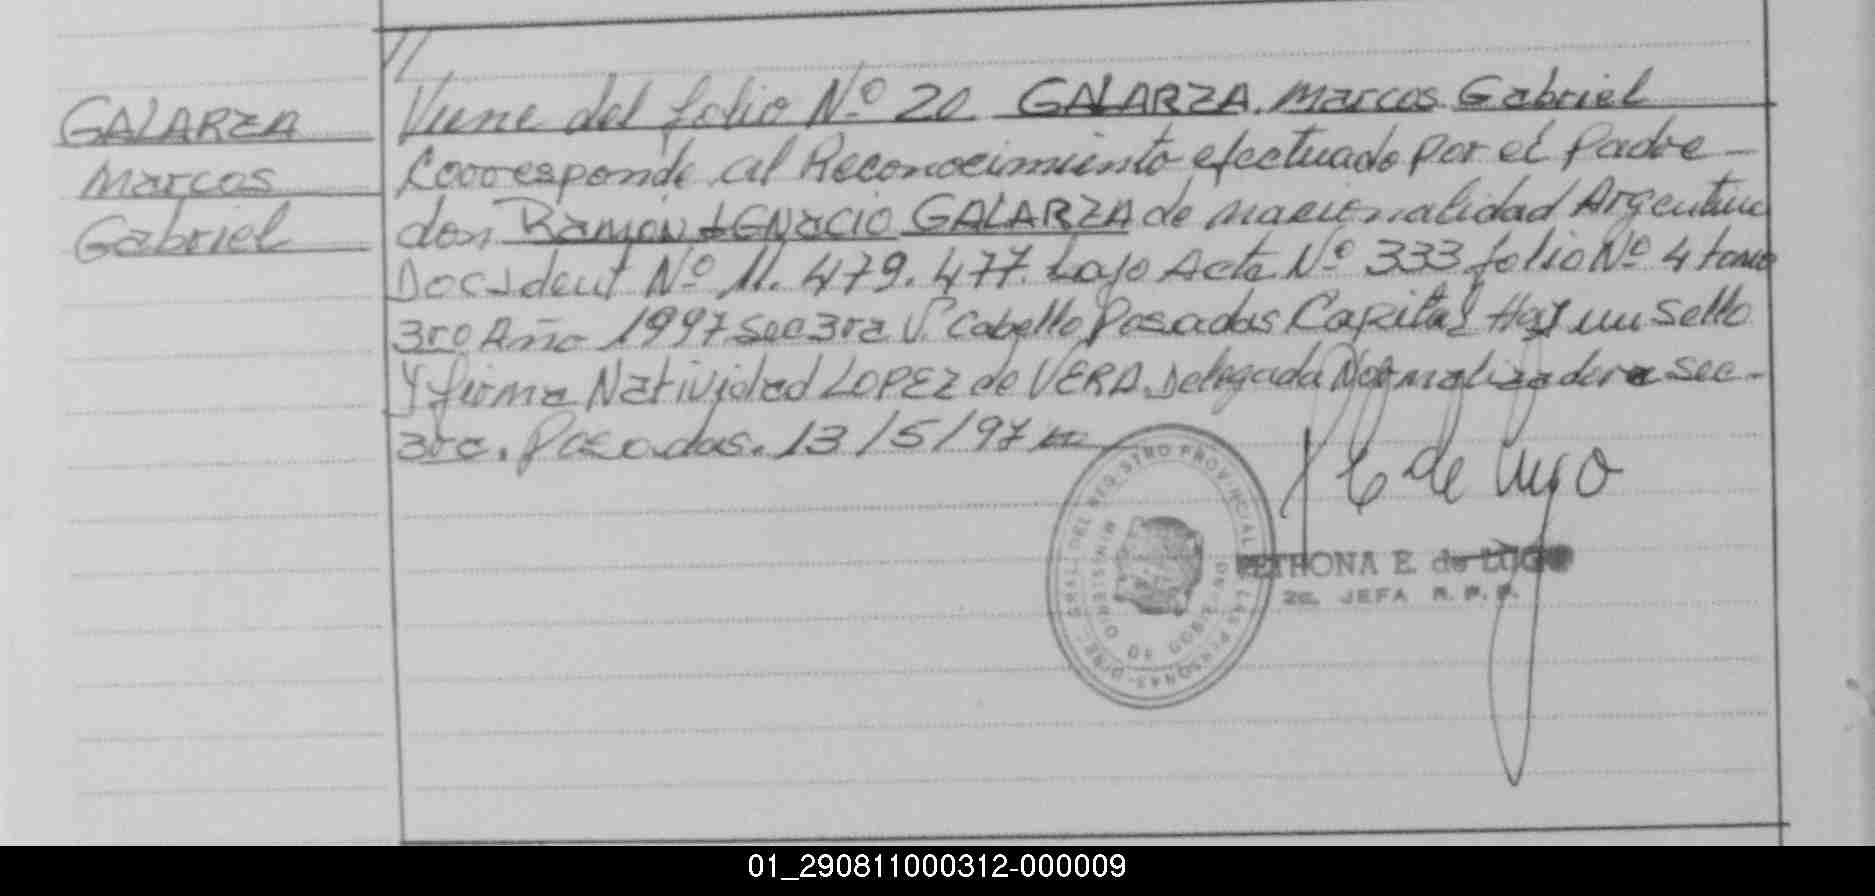 GALARZA
Marcos
Gabriel
//
Viene del folio Nº 20. GALARZA. Marcos Gabriel
Corresponde al Reconocimiento efectuado por el Padre
don Ramón IGNACIO GALARZA de nacionalidad Argentino
Doc. Ident Nº 11.479.477. bajo Acta Nº 333 folio Nº 4 tomo
3ro Año 1997 Sec 3ra V. Cabello Posadas Capital Hay un Sello
Y firma Natividad LOPEZ de VERA Delegada Normalizadora Sec-
3ra. Posadas. 13/5/97
P E de Lugo
DIRE. GRAL. DEL REGISTRO PROVINCIAL LAS PERSONAS
MINISTERIO DE GOBIERNO
PETRONA E. de LUGO
2a. JEFA R. P. P.
01_290811000312-000009